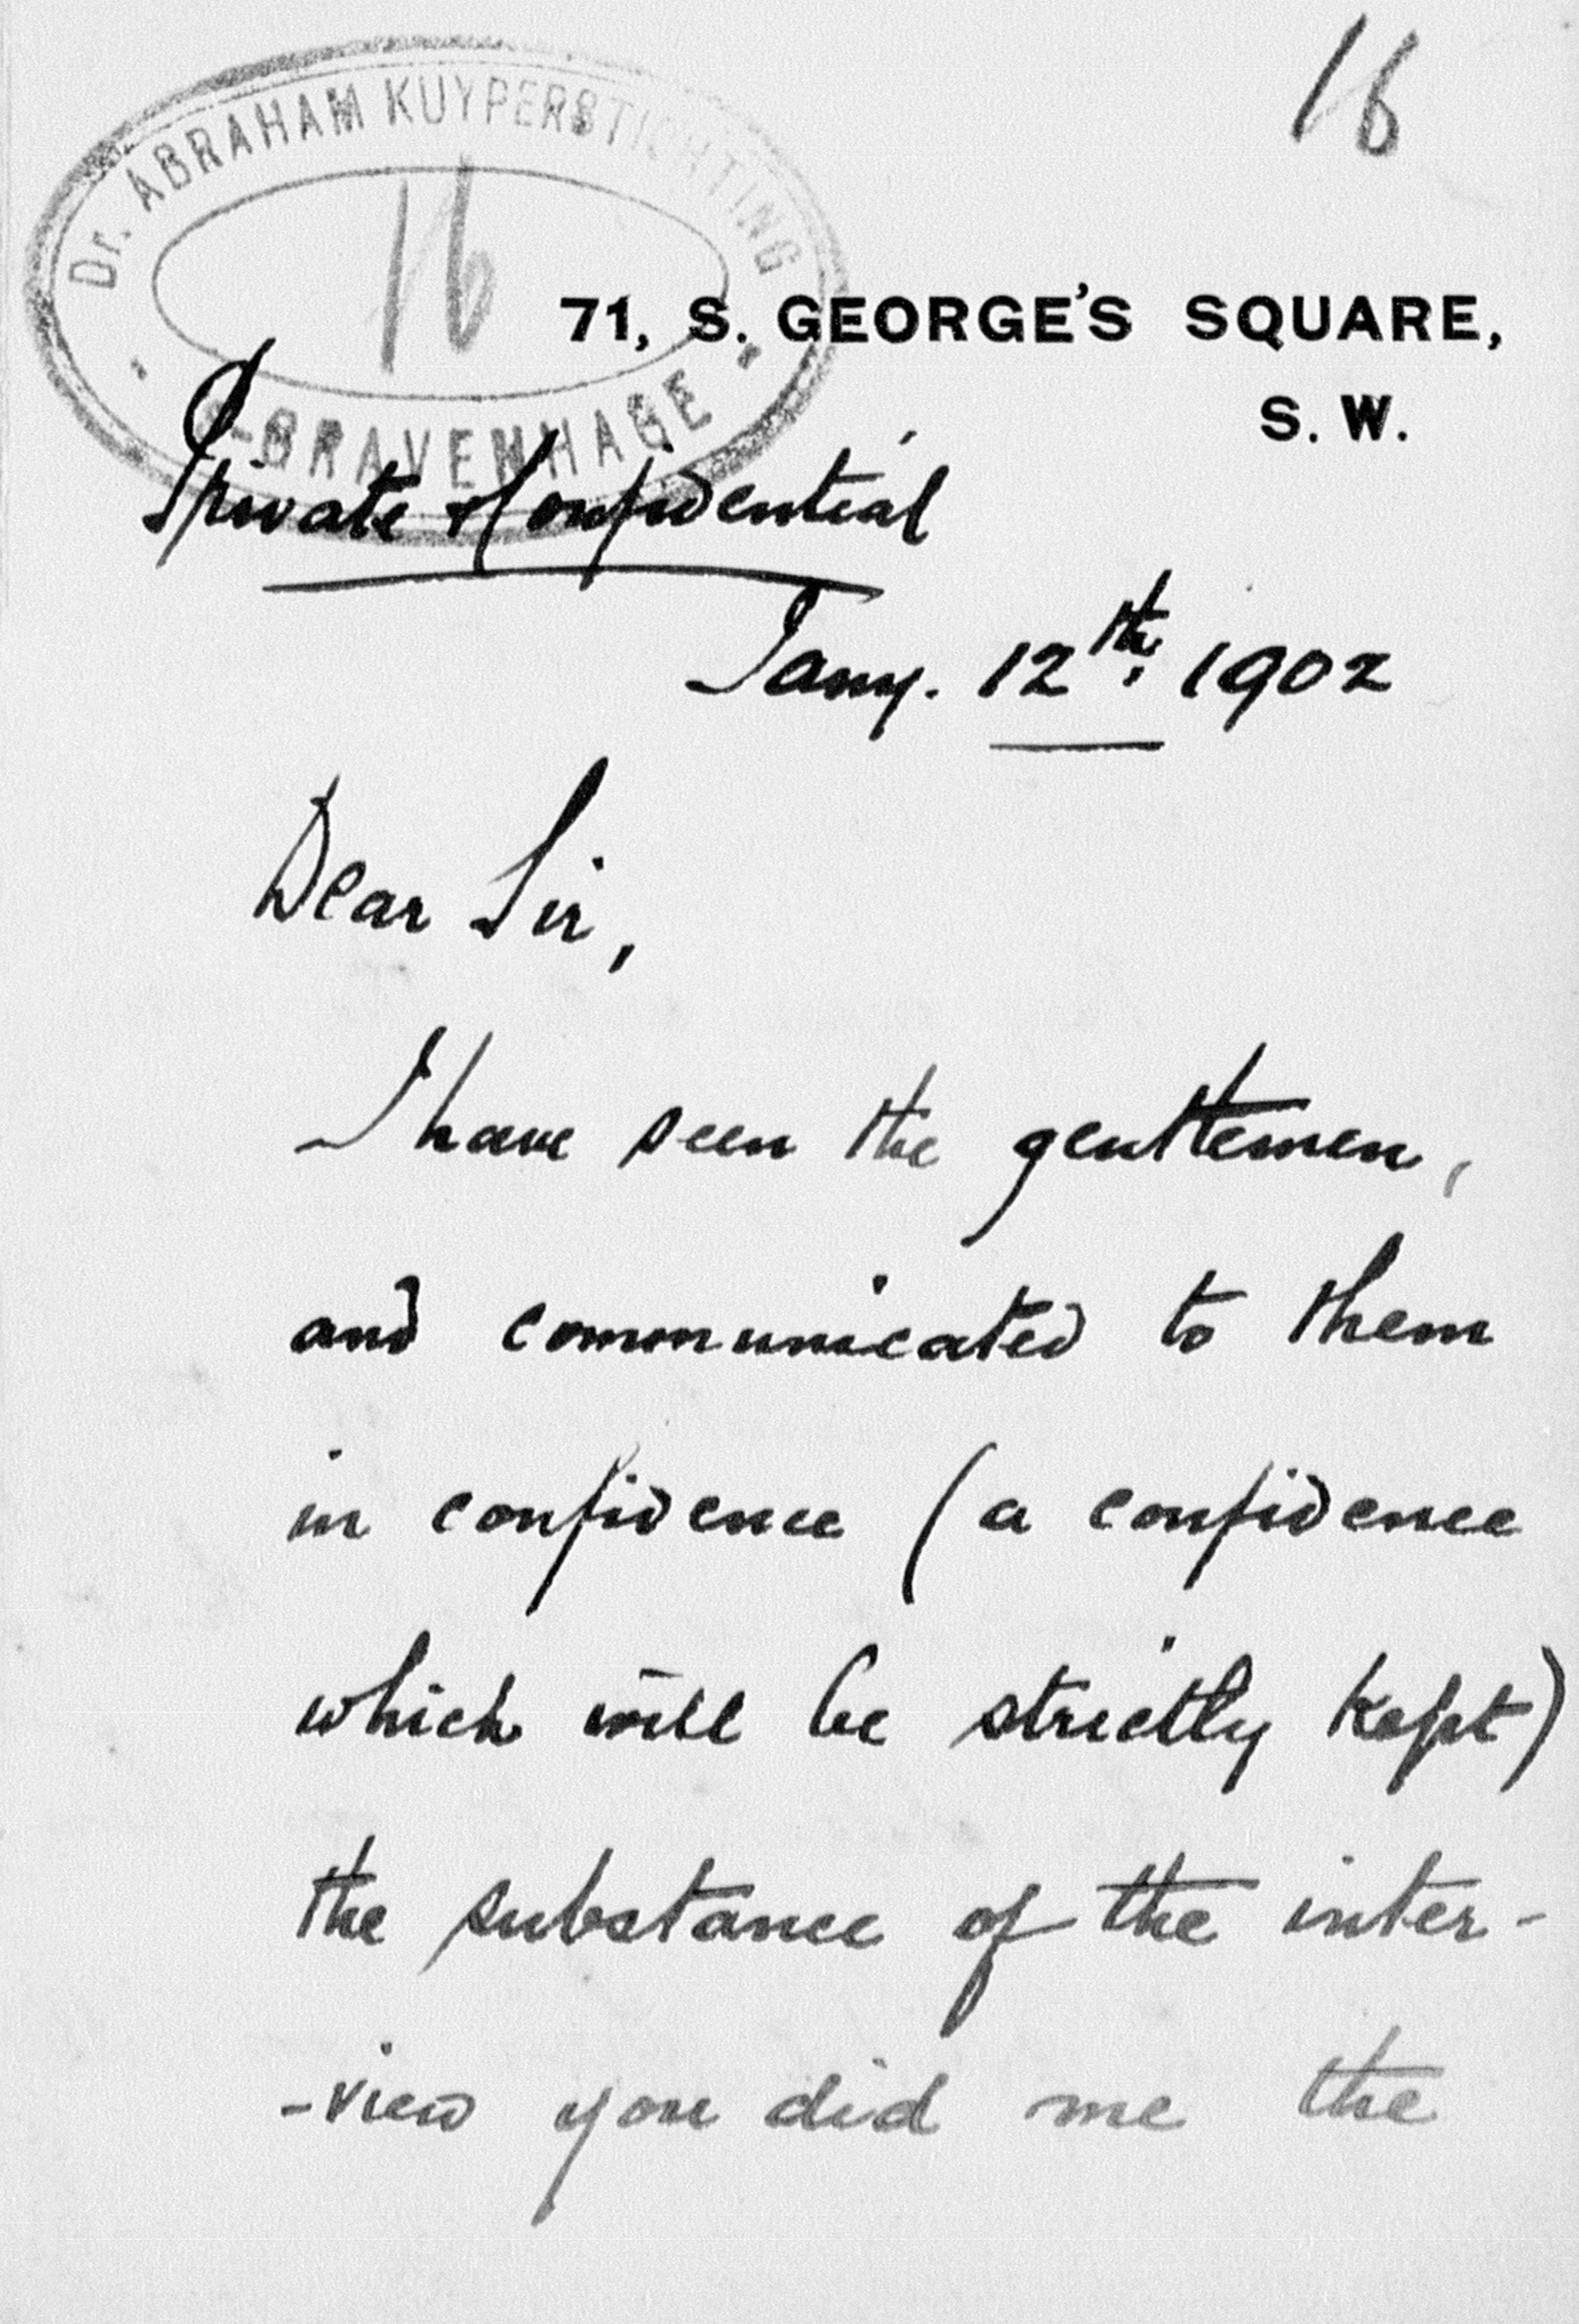 16
Dr. ABRAHAM KUYPERSTICHTING
16
'S-GRAVENHAGE
71, S. GEORGE'S SQUARE,
S. W.
Private & Confidential
Jany. 12th, 1902
Dear Sir,
I have seen the gentlemen,
and communicated to them
in confidence (a confidence
which will be strictly kept)
the substance of the inter-
-view you did me the